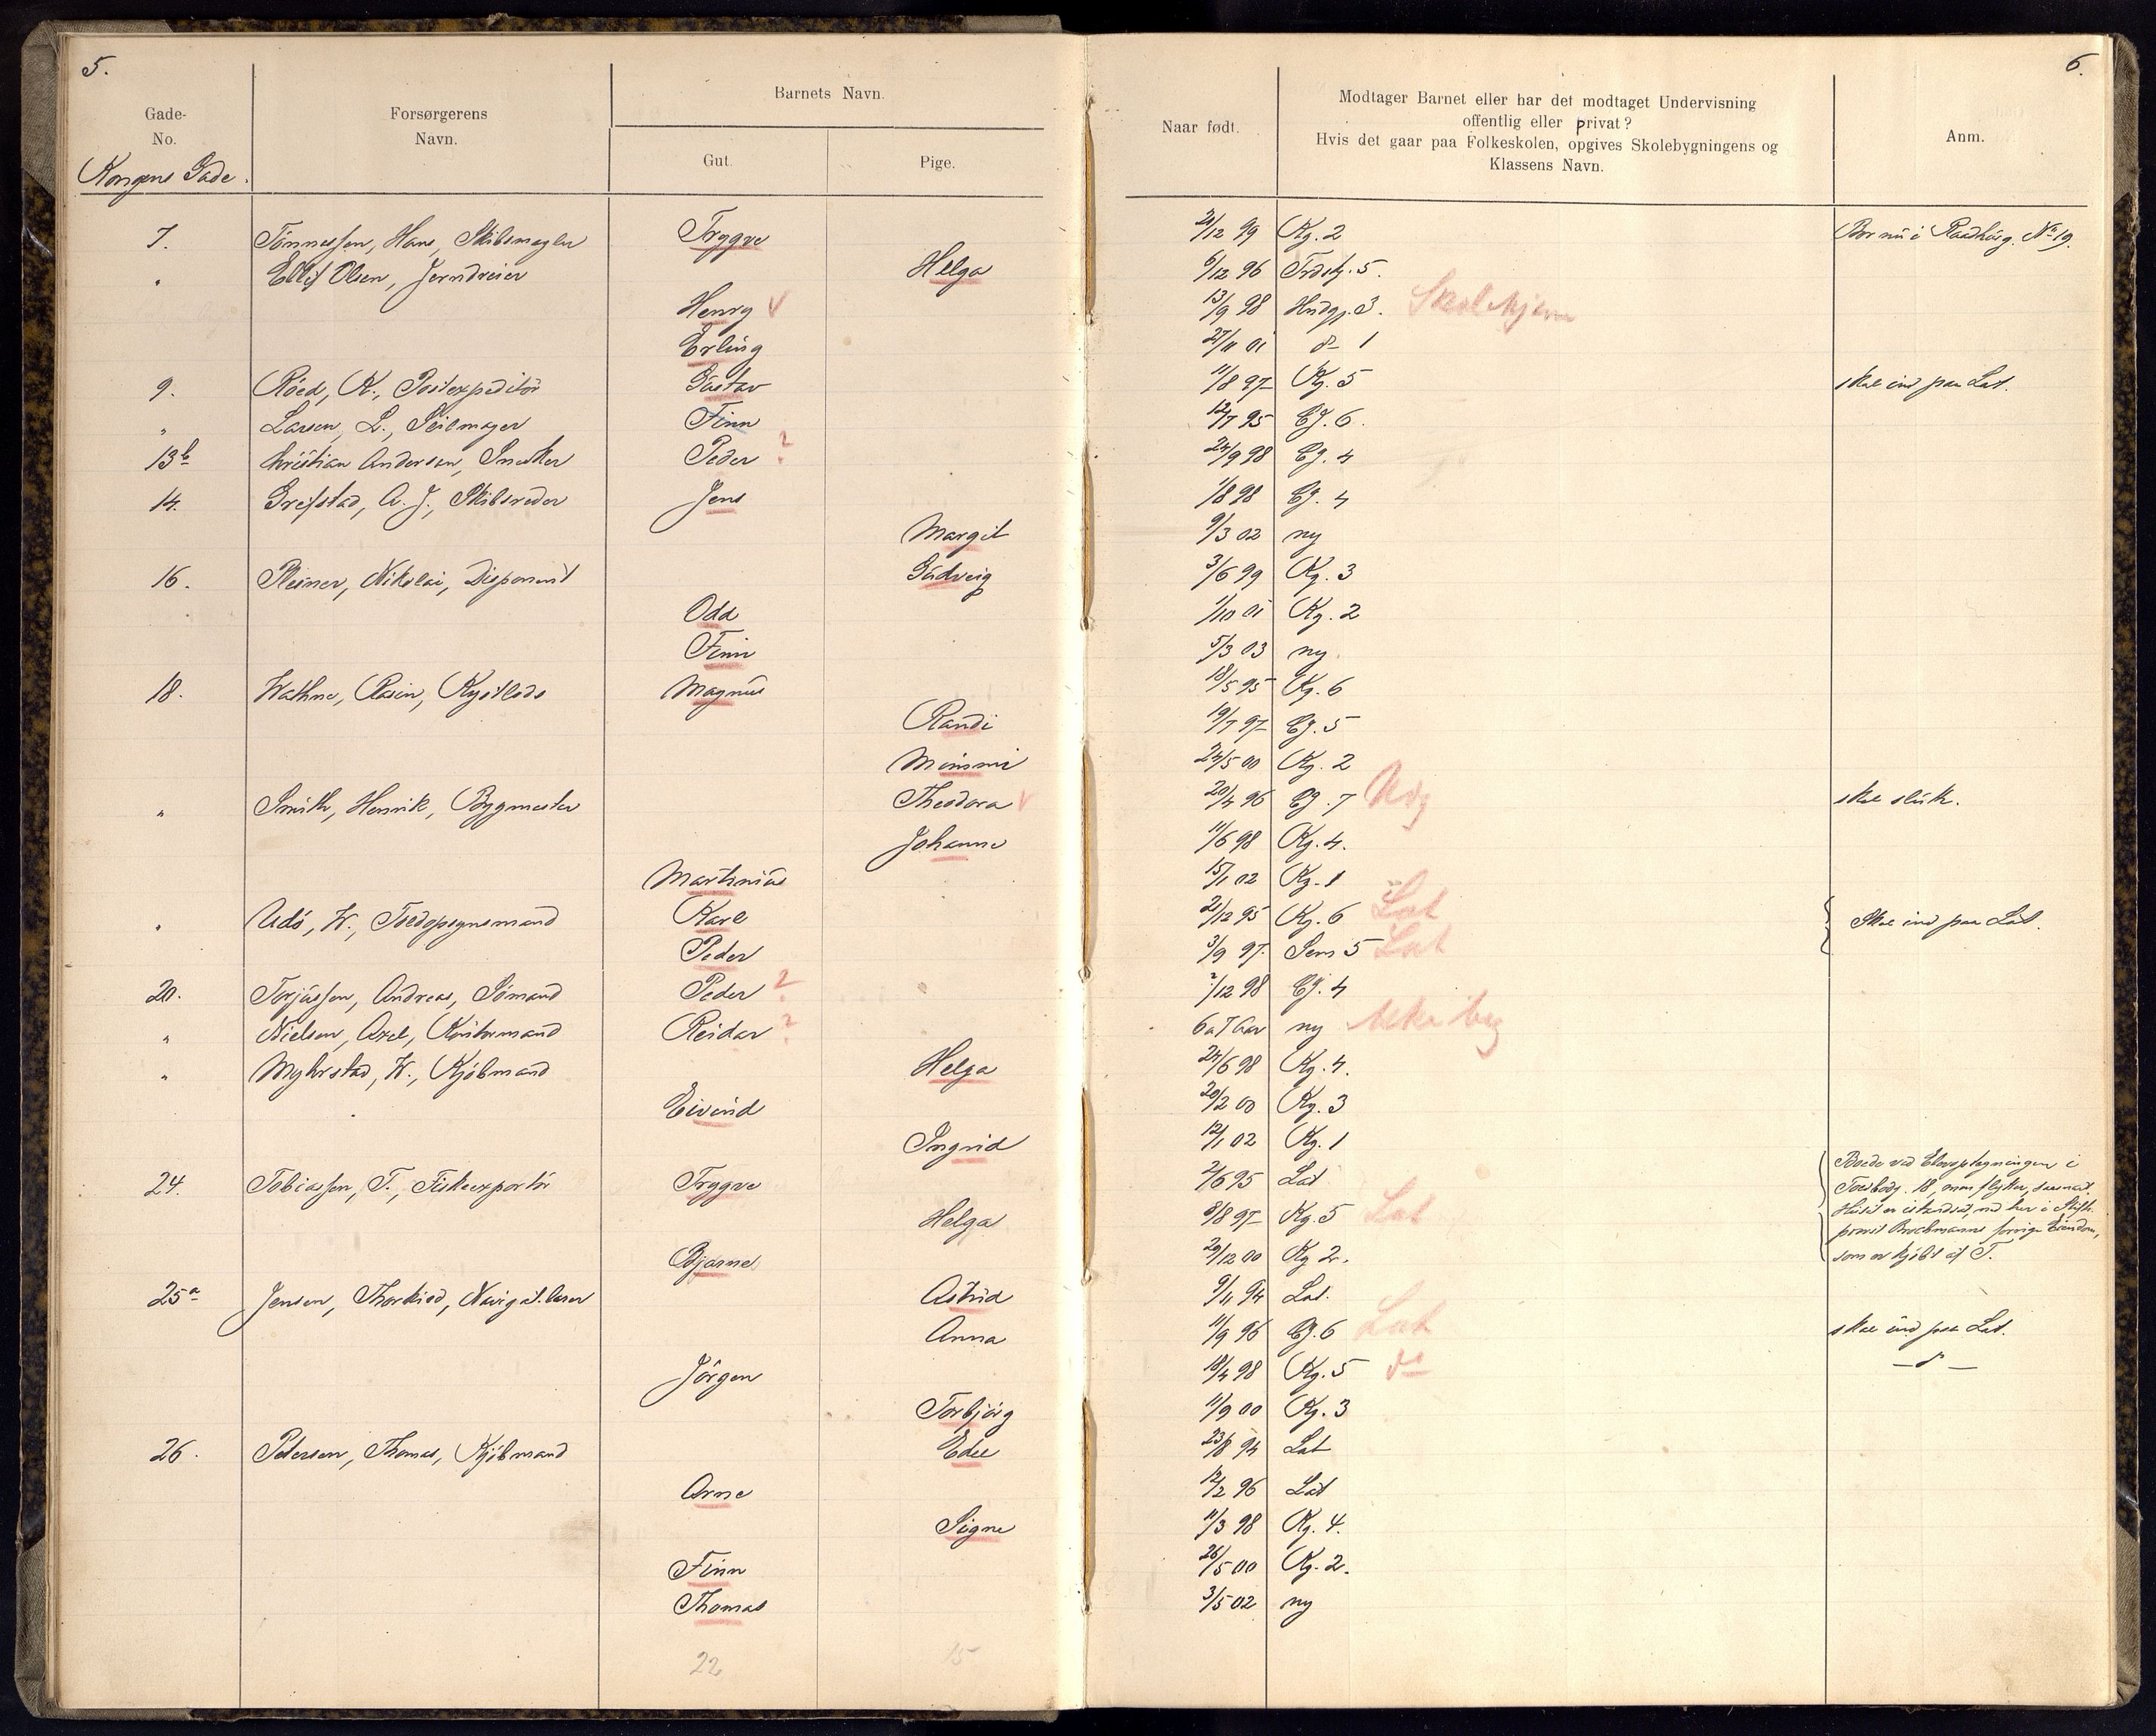 5.
6.
Gade-
No.
Forsørgerens
Navn.
Barnets Navn.
Gut.
Pige.
Naar født.
Modtager Barnet eller har det modtaget Undervisning
offentlig eller privat?
Hvis det gaar paa Folkeskolen, opgives Skolebygningens og
Klassens Navn.
Anm.
Kongens Gade.
7. Tönnessen, Hans, Skibsmægler Trygve 21/12 99 Kg. 2 Bor nu i Raadhusg. No 19.
" Ellef Olsen, Jerndreier Helga 6/12 96 5.
Henry V 13/9 98 3. Skolehjem
Erling 27/11 01 do 1
9. Röed, K., Postexpeditör Gustav 11/8 97 Kg. 5 skal ind paa Lat.
" Larsen, L., Seilmager Finn 12/7 95 Eg. 6.
13b Christian Andersen, Snedker Peder ? 24/9 98 Eg. 4
14. Grefstad, A. J., Skibsreder Jens 1/8 98 Eg. 4
Margit 9/3 02 ny
16. Pleiner, Nikolai, Disponent Gudveig 3/6 99 Kg. 3
Odd 1/10 01 Kg. 2
Finn 5/3 03 ny.
18. Wathne, Rasm, Kystlods Magnus 18/5 95 Kg. 6
Randi 19/7 97 Eg. 5
Mimmi 24/5 00 Kg. 2
" Smith, Henrik, Bygmester Theodora V 20/4 96 Eg. 7 Udg skal slutte.
Johanne 11/6 98 Kg. 4.
Martinius 15/1 02 Kg. 1
" Udö, W., Karl 21/12 95 Kg. 6 Lat Skal ind paa Lat.
Peder 3/9 97 Sem 5 Lat
20. Torjussen, Andreas, Sömand Peder ? 2/12 98 Eg. 4
" Nielsen, Axel, Kontormand Reidar ? 6 a 7 Aar ny
" Myhrstad, W., Kjöbmand Helga 24/6 98 Kg. 4.
Eivind 20/2 00 Kg. 3
Ingrid 12/1 02 Kg. 1
24. Tobiassen, T., Fiskeexportör Trygve 2/6 95 Lat Boede ved i
18, men flytter, saasnart
Helga 8/8 97 Kg. 5 Lat Huset er istandsat, ned her i
forrige Eiendom,
Bjarne 29/12 00 Kg 2. som er kjöbt af T.
25a Jensen, Thorkild, Navigat.lærer Astrid 9/11 94 Lat.
Anna 11/9 96 Eg. 6 Lat skal ind paa Lat.
Jörgen 18/4 98 Kg. 5 do — do —
Torbjörg 11/9 00 Kg. 3
26. Petersen, Thomas, Kjöbmand Edel 23/8 94 Lat
Arne 12/2 96 Lat
Signe 11/3 98 Kg. 4.
Finn 26/5 00 Kg. 2.
Thomas 3/5 02 ny
22 15